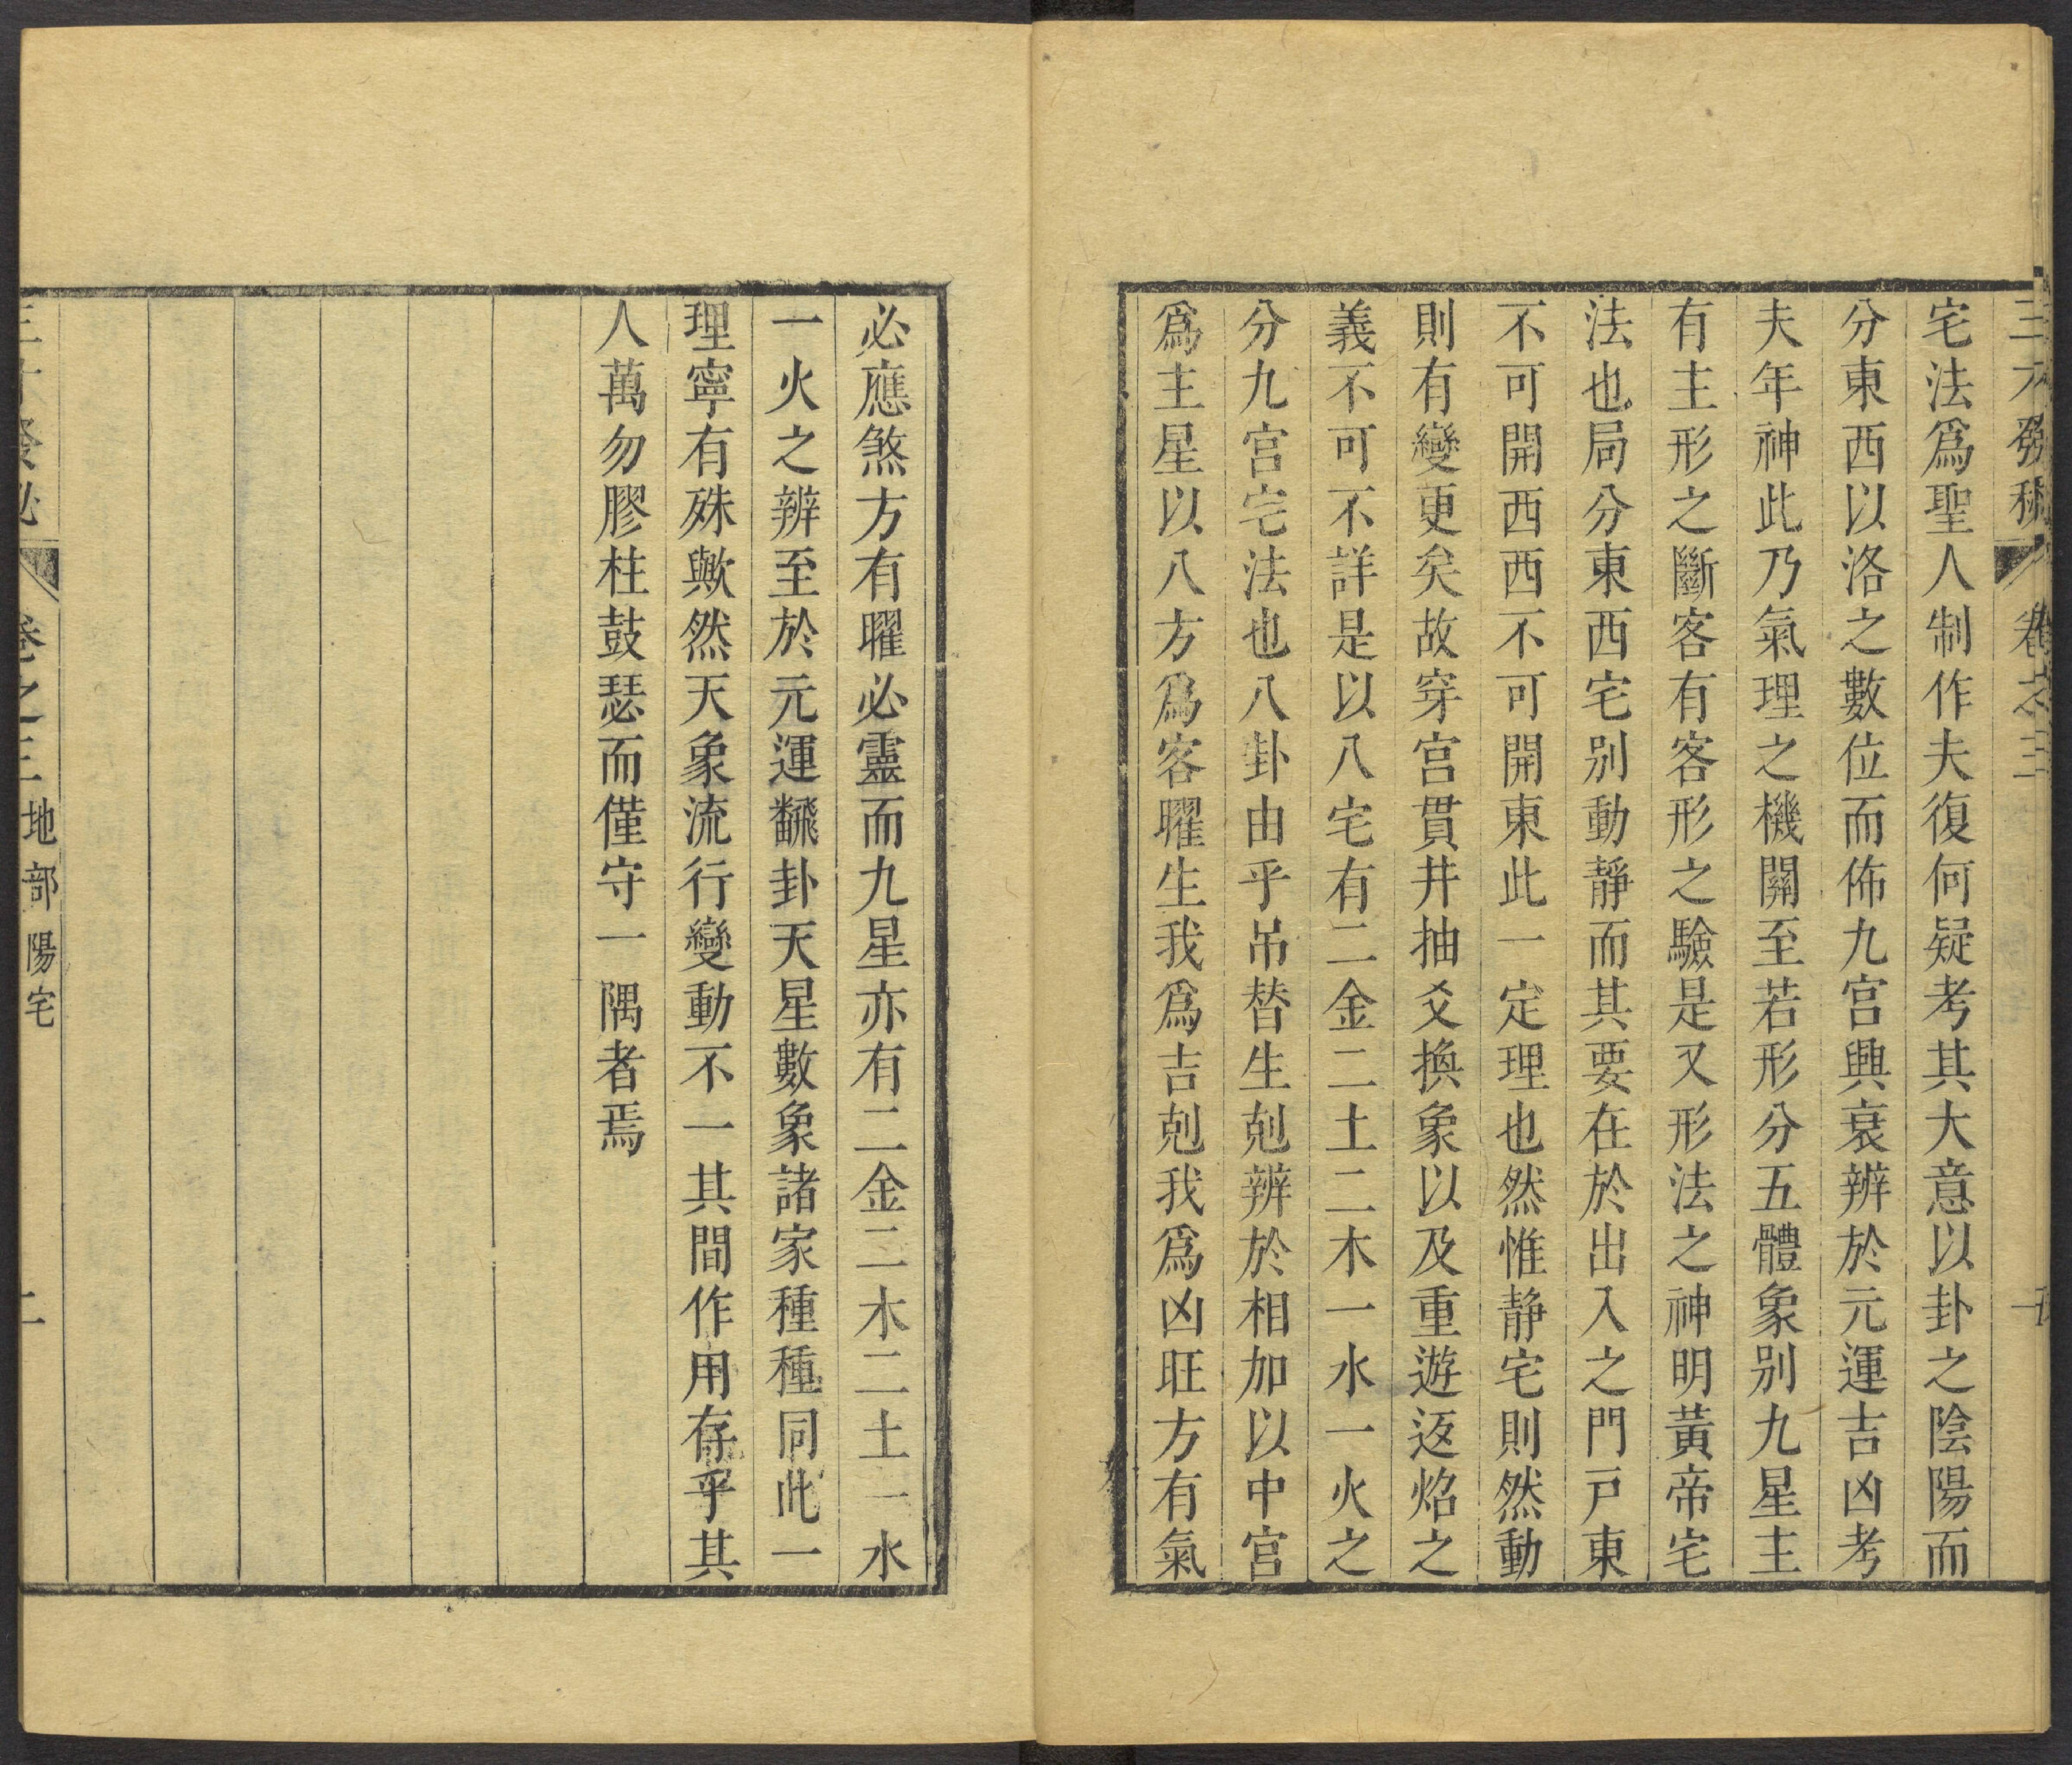 宅法爲聖人制作夫復何疑考其大意以卦之陰陽而
分東西以洛之數位而佈九宮興衰辨於元運吉凶考
夫年神此乃氣理之機關至若形分五體象別九星主
有主形之斷客有客形之驗是又形法之神明黃帝宅
法也局分東西宅別動靜而其要在於出入之門戸東
不可開西西不可開東此一定理也然惟靜宅則然動
則有變更矣故穿宮貫井抽爻換象以及重遊返焰之
義不可不詳是以八宅有二金二土二木一水一火之
分九宮宅法也八卦由乎吊替生剋辨於相加以中宮
爲主星以八方爲客曜生我爲吉剋我爲凶旺方有氣
必應煞方有曜必靈而九星亦有二金二木二土一水
一火之辨至於元運飜卦天星數象諸家種種同此一
理寧有殊歟然天象流行變動不一其間作用存乎其
人萬勿膠柱鼓瑟而僅守一隅者焉
卷之三 地部 陽宅 二